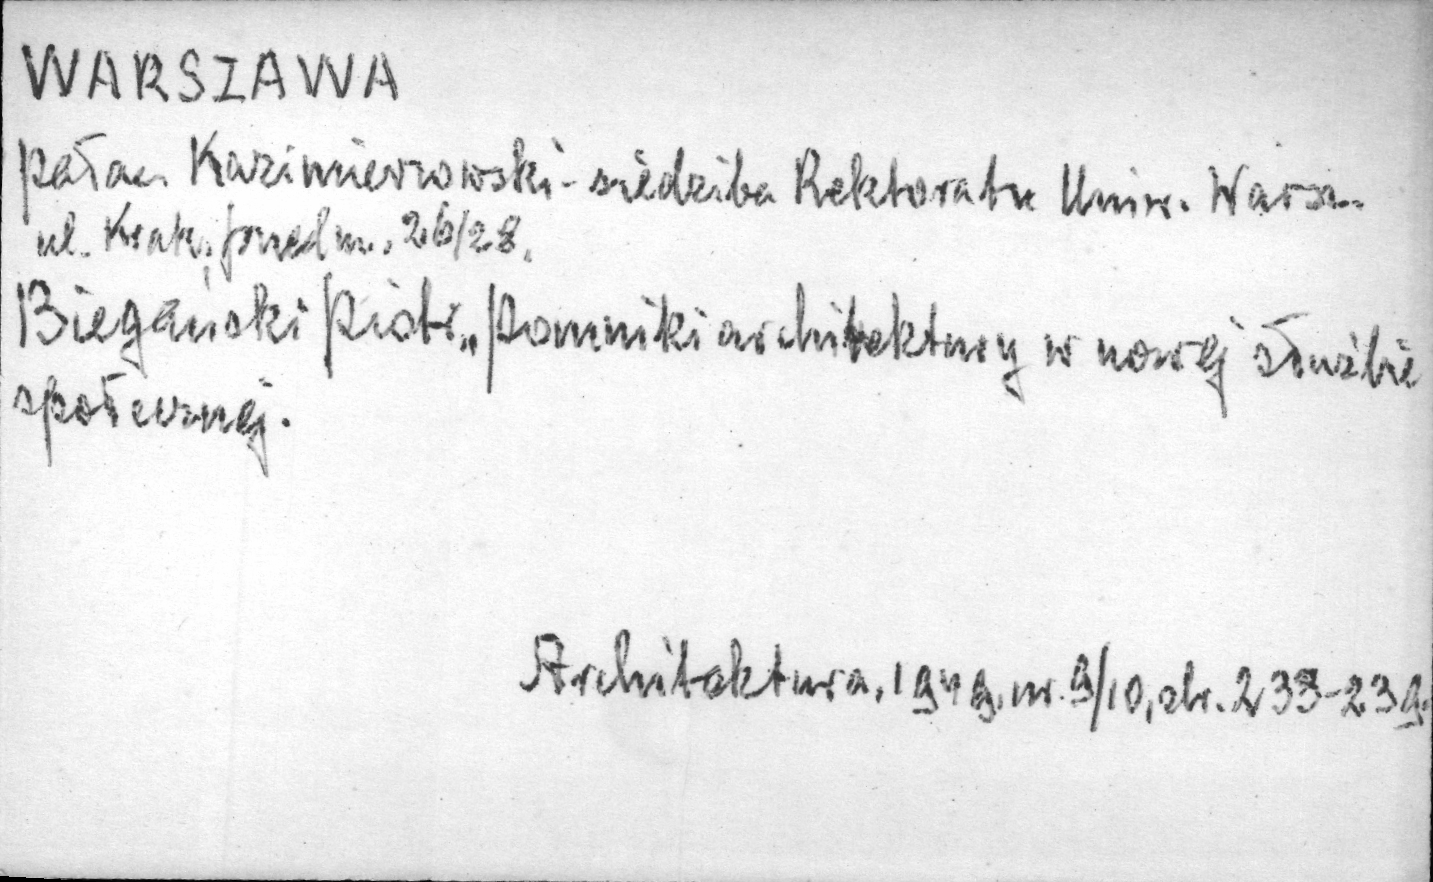 WARSZAWA
pałac Kazimierzowski - siedziba Rektoratu Uniw. Warsz.
ul. Krak. przedm. 26/28.
Biegański Piotr „Pomniki architektury w nowej służbie
społecznej.
Architektura, 1949, nr. 9/10, str. 233-239.